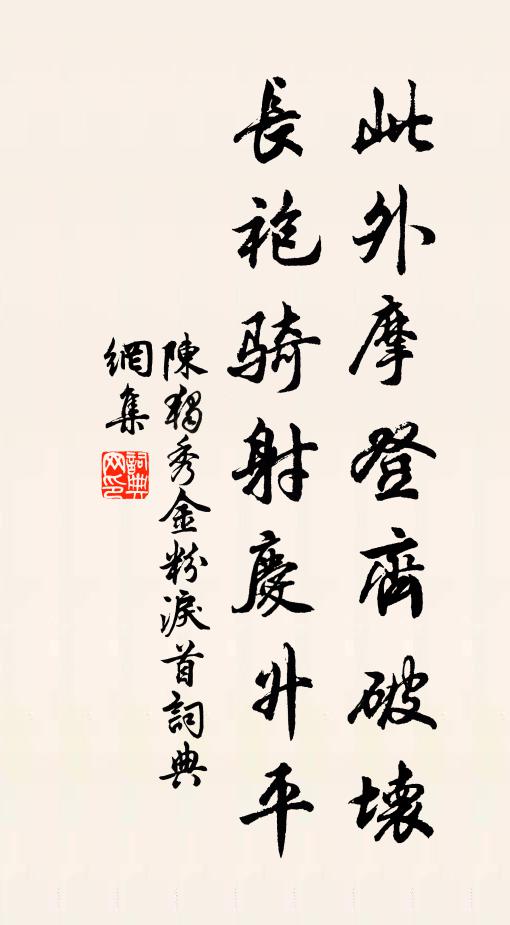 此外摩登齊破壞
長袍騎射慶升平
陳獨秀金粉淚首詞典
網集
詞典
网印